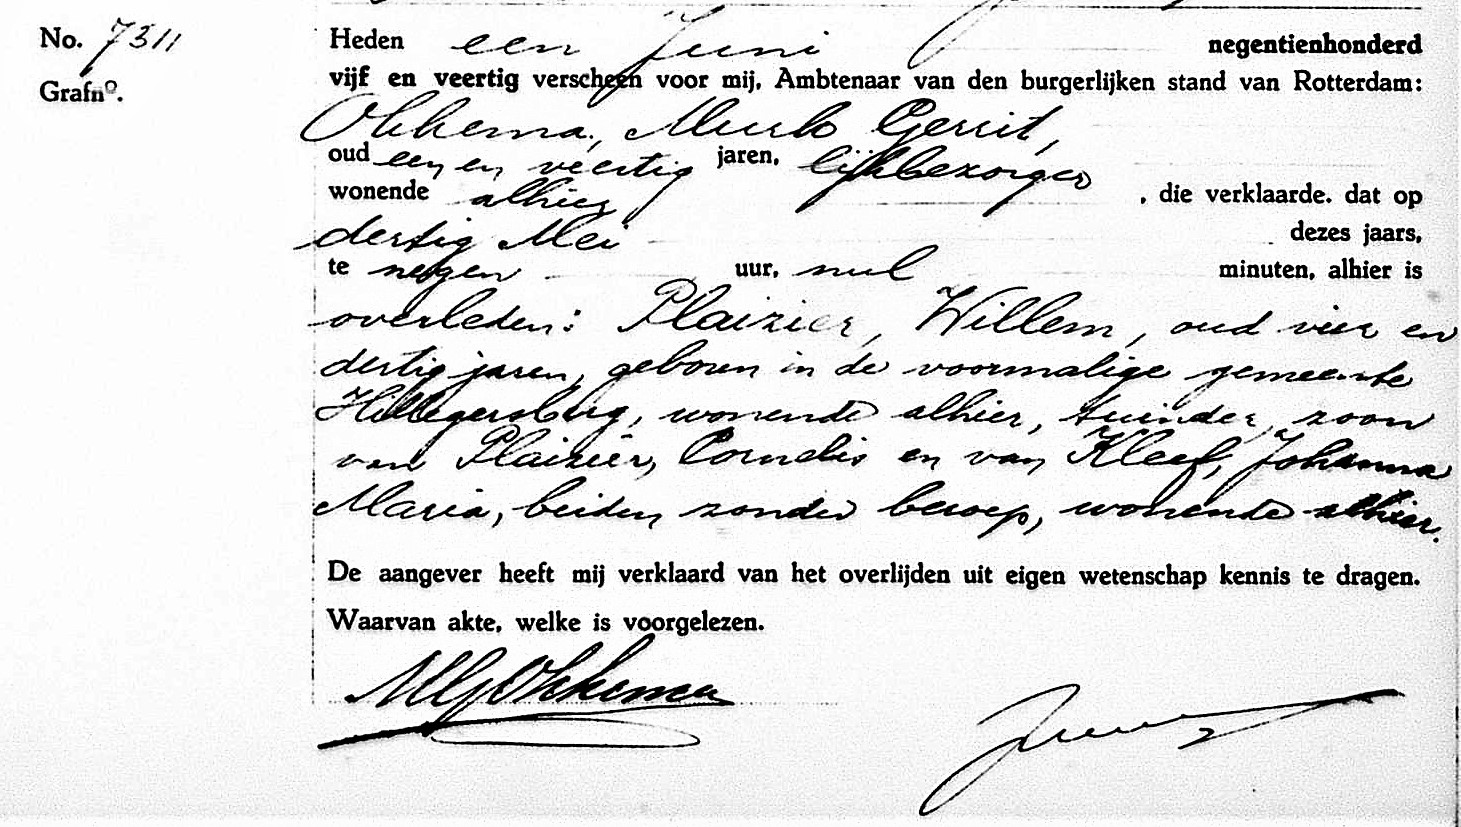 No. 7311
Grafno.
Heden een Juni negentienhonderd
vijf en veertig verscheen voor mij, Ambtenaar van den burgerlijken stand van Rotterdam:
Okkema, Gerrit,
oud een en veertig jaren, lijkbezorger
wonende alhier, die verklaarde, dat op
dertig Mei dezes jaars,
te negen uur, nul minuten, alhier is
overleden: Plaizier, Willem, oud vier en
dertig jaren, geboren in de voormalige gemeente
Hillegersberg, wonende alhier, tuinder, zoon
van Plaizier, Cornelis en van Kleef, Johanna
Maria, beiden zonder beroep, wonende alhier.
De aangever heeft mij verklaard van het overlijden uit eigen wetenschap kennis te dragen.
Waarvan akte, welke is voorgelezen.
MGOkkema